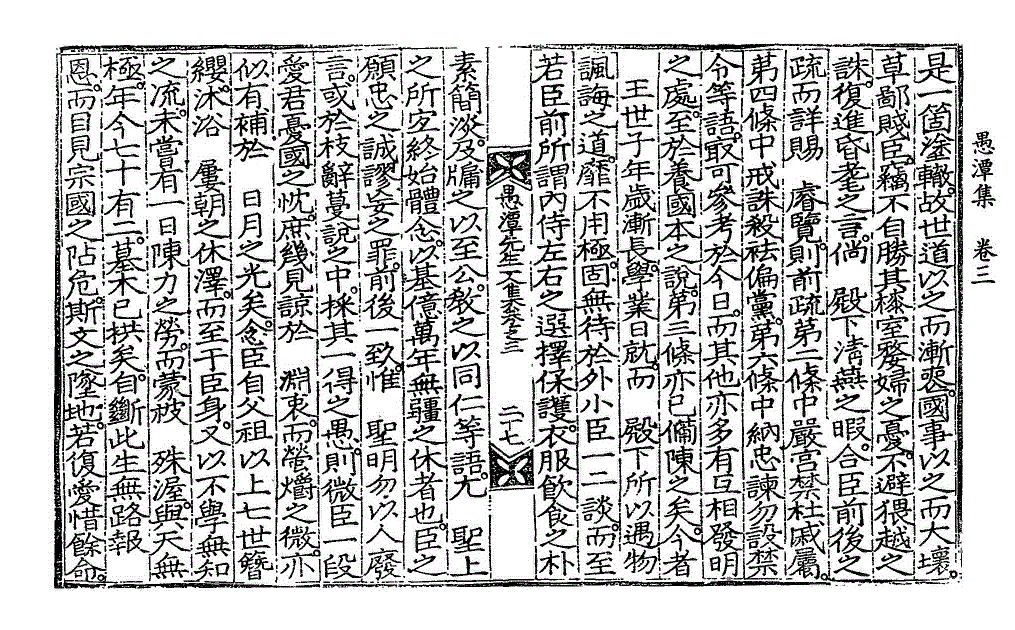 愚潭集 卷三
是一箇塗轍故世道以之而漸喪國事以之而大壞
草鄙賤臣竊不自勝其漆室嫠婦之憂不避猥越之
誅復進昏耄之言倘 殿下淸燕之暇合臣前後之
疏而詳賜 睿覽則前疏第二條中嚴宮禁杜戚屬
第四條中戒誅殺祛偏黨第六條中納忠諫勿設禁
令等語最可參考於今日而其他亦多有互相發明
之處至於養國本之說第三條亦已備陳之矣今者
王世子年歲漸長學業日就而 殿下所以遇物
諷誨之道靡不用極固無待於外小臣一二談而至
若臣前所謂內侍左右之選擇保護衣服飮食之朴
愚潭先生文集卷之三 二十七
素簡淡及牖之以至公敎之以同仁等語尤 聖上
之所宜終始體念以基億萬年無疆之休者也臣之
願忠之誠謬妄之罪前後一致惟 聖明勿以人廢
言或於枝辭蔓說之中採其一得之愚則微臣一段
愛君憂國之忱庶幾見諒於 淵衷而螢爝之微亦
似有補於 日月之光矣念臣自父祖以上七世簪
纓沐浴 屢朝之休澤而至于臣身又以不學無知
之流未嘗有一日陳力之勞而蒙被 殊渥與天無
極年今七十有二墓木已拱矣自斷此生無路報
恩而目見宗國之阽危斯文之墜地若復愛惜餘命